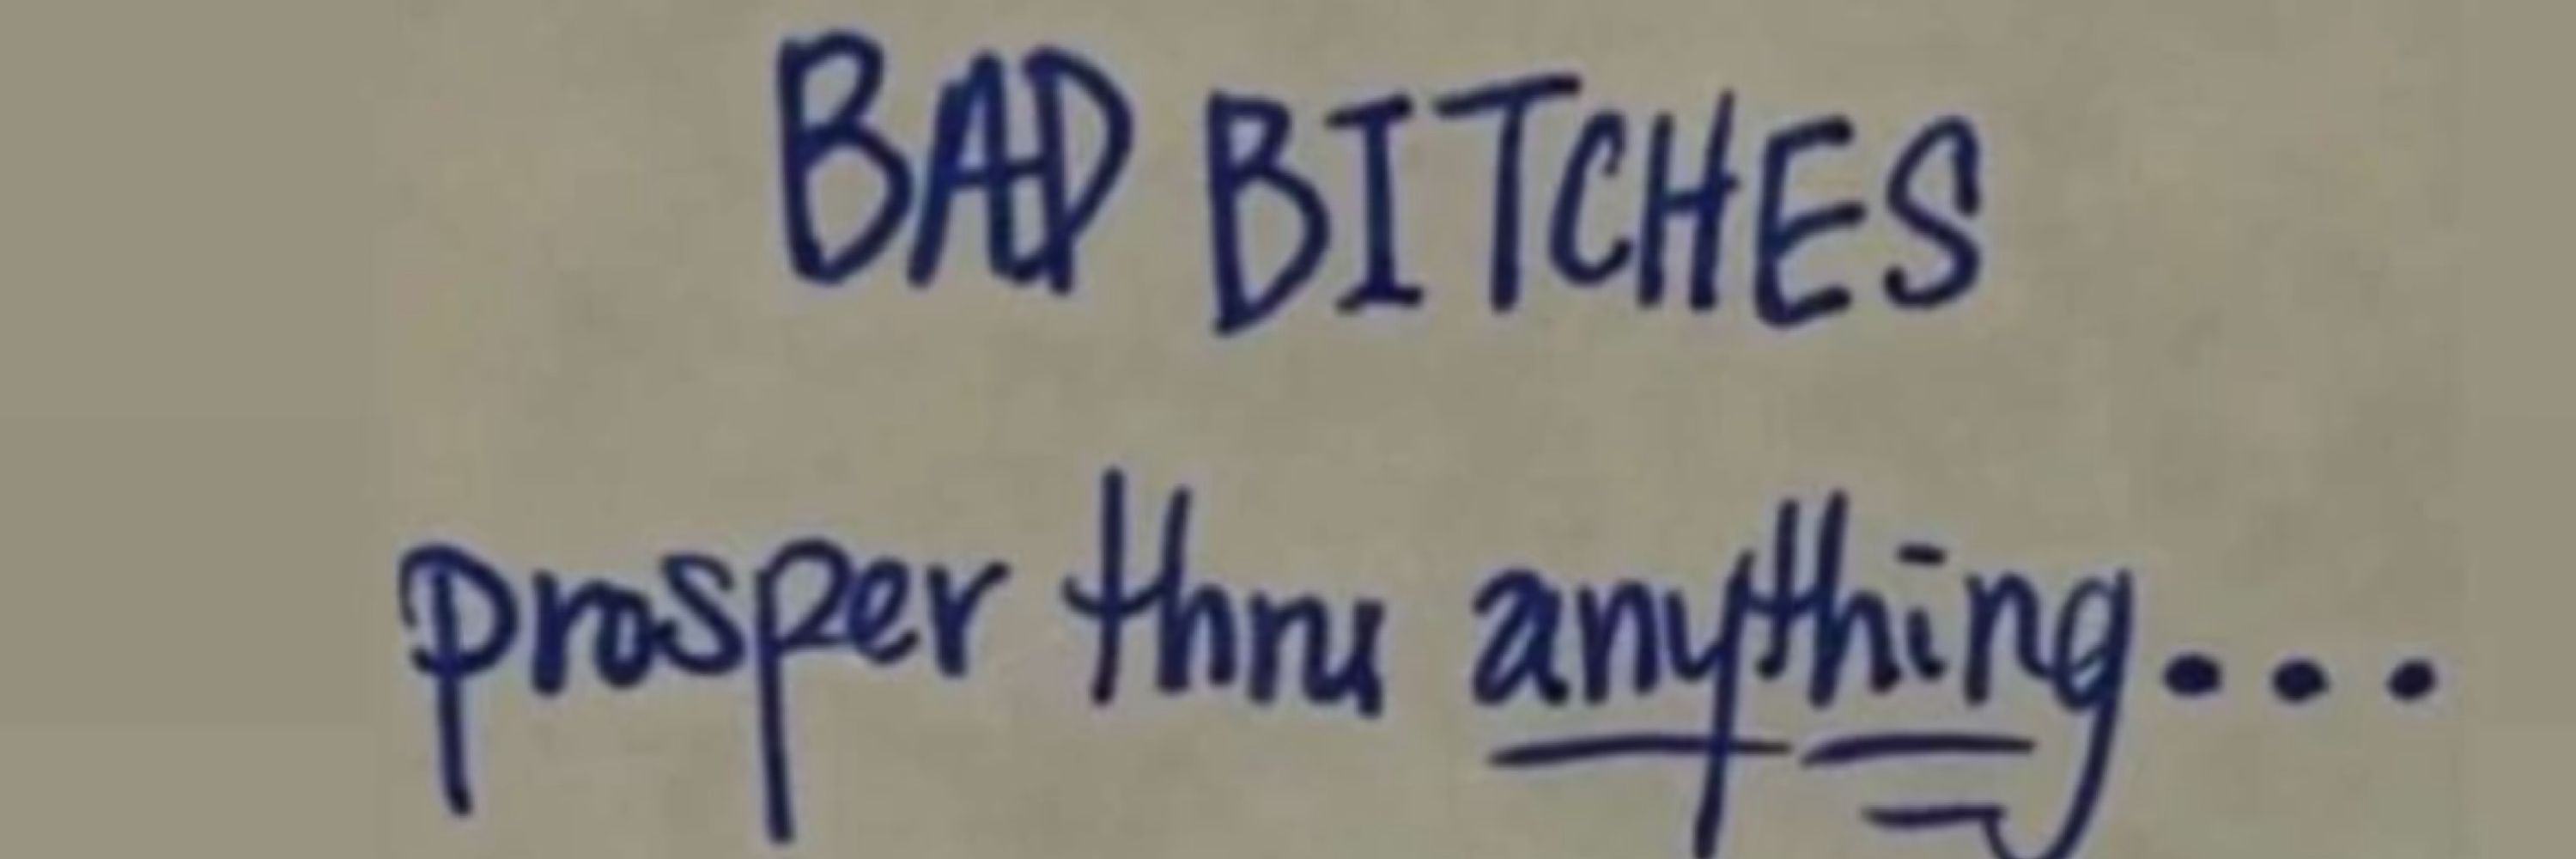 BAD BITCHES
prosper thru anything...